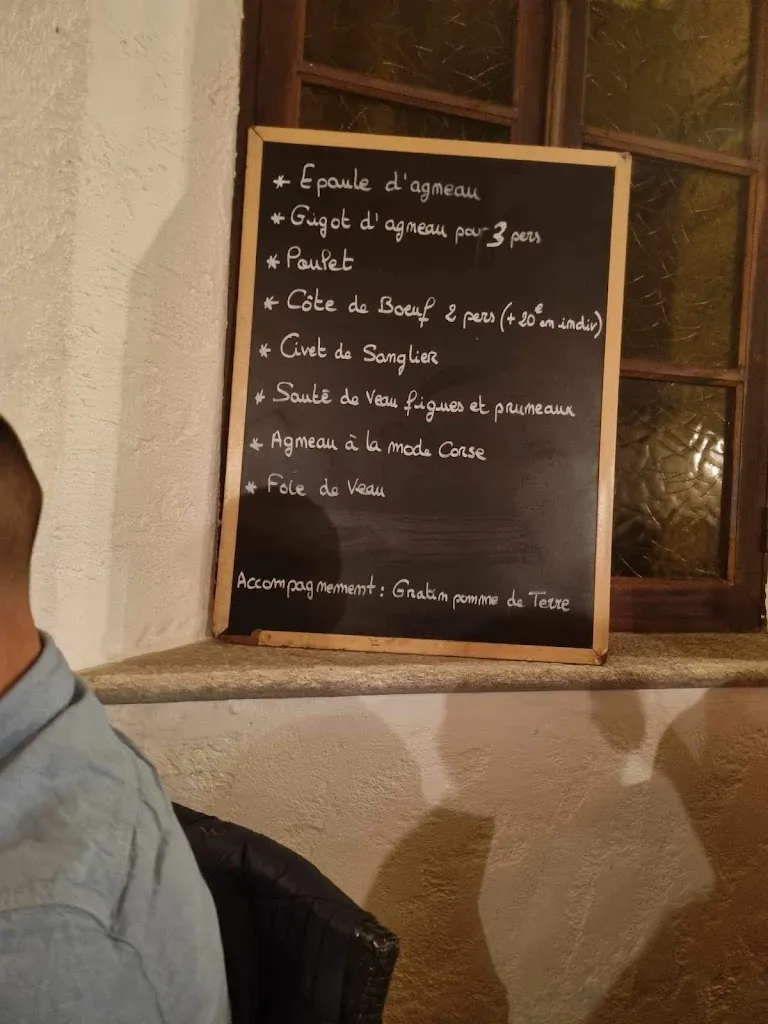 * Epaule d'agneau
* Gigot d'agneau pour 3 pers
* Poulet
* Côte de Boeuf 2 pers (+20€ en indiv)
* Civet de Sanglier
* Sauté de Veau figues et pruneaux
* Agneau à la mode Corse
* Foie de Veau
Accompagnement : Gratin pomme de Terre